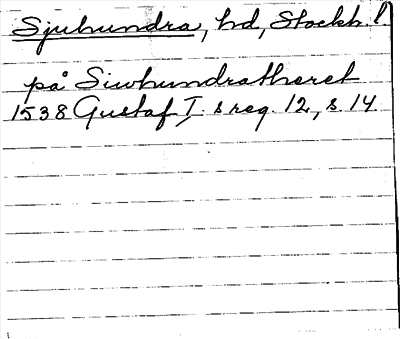 Sjuhundra, hd, Stockh. l
på Siwhundratheret
1538 Gustaf I:s reg. 12, s. 14